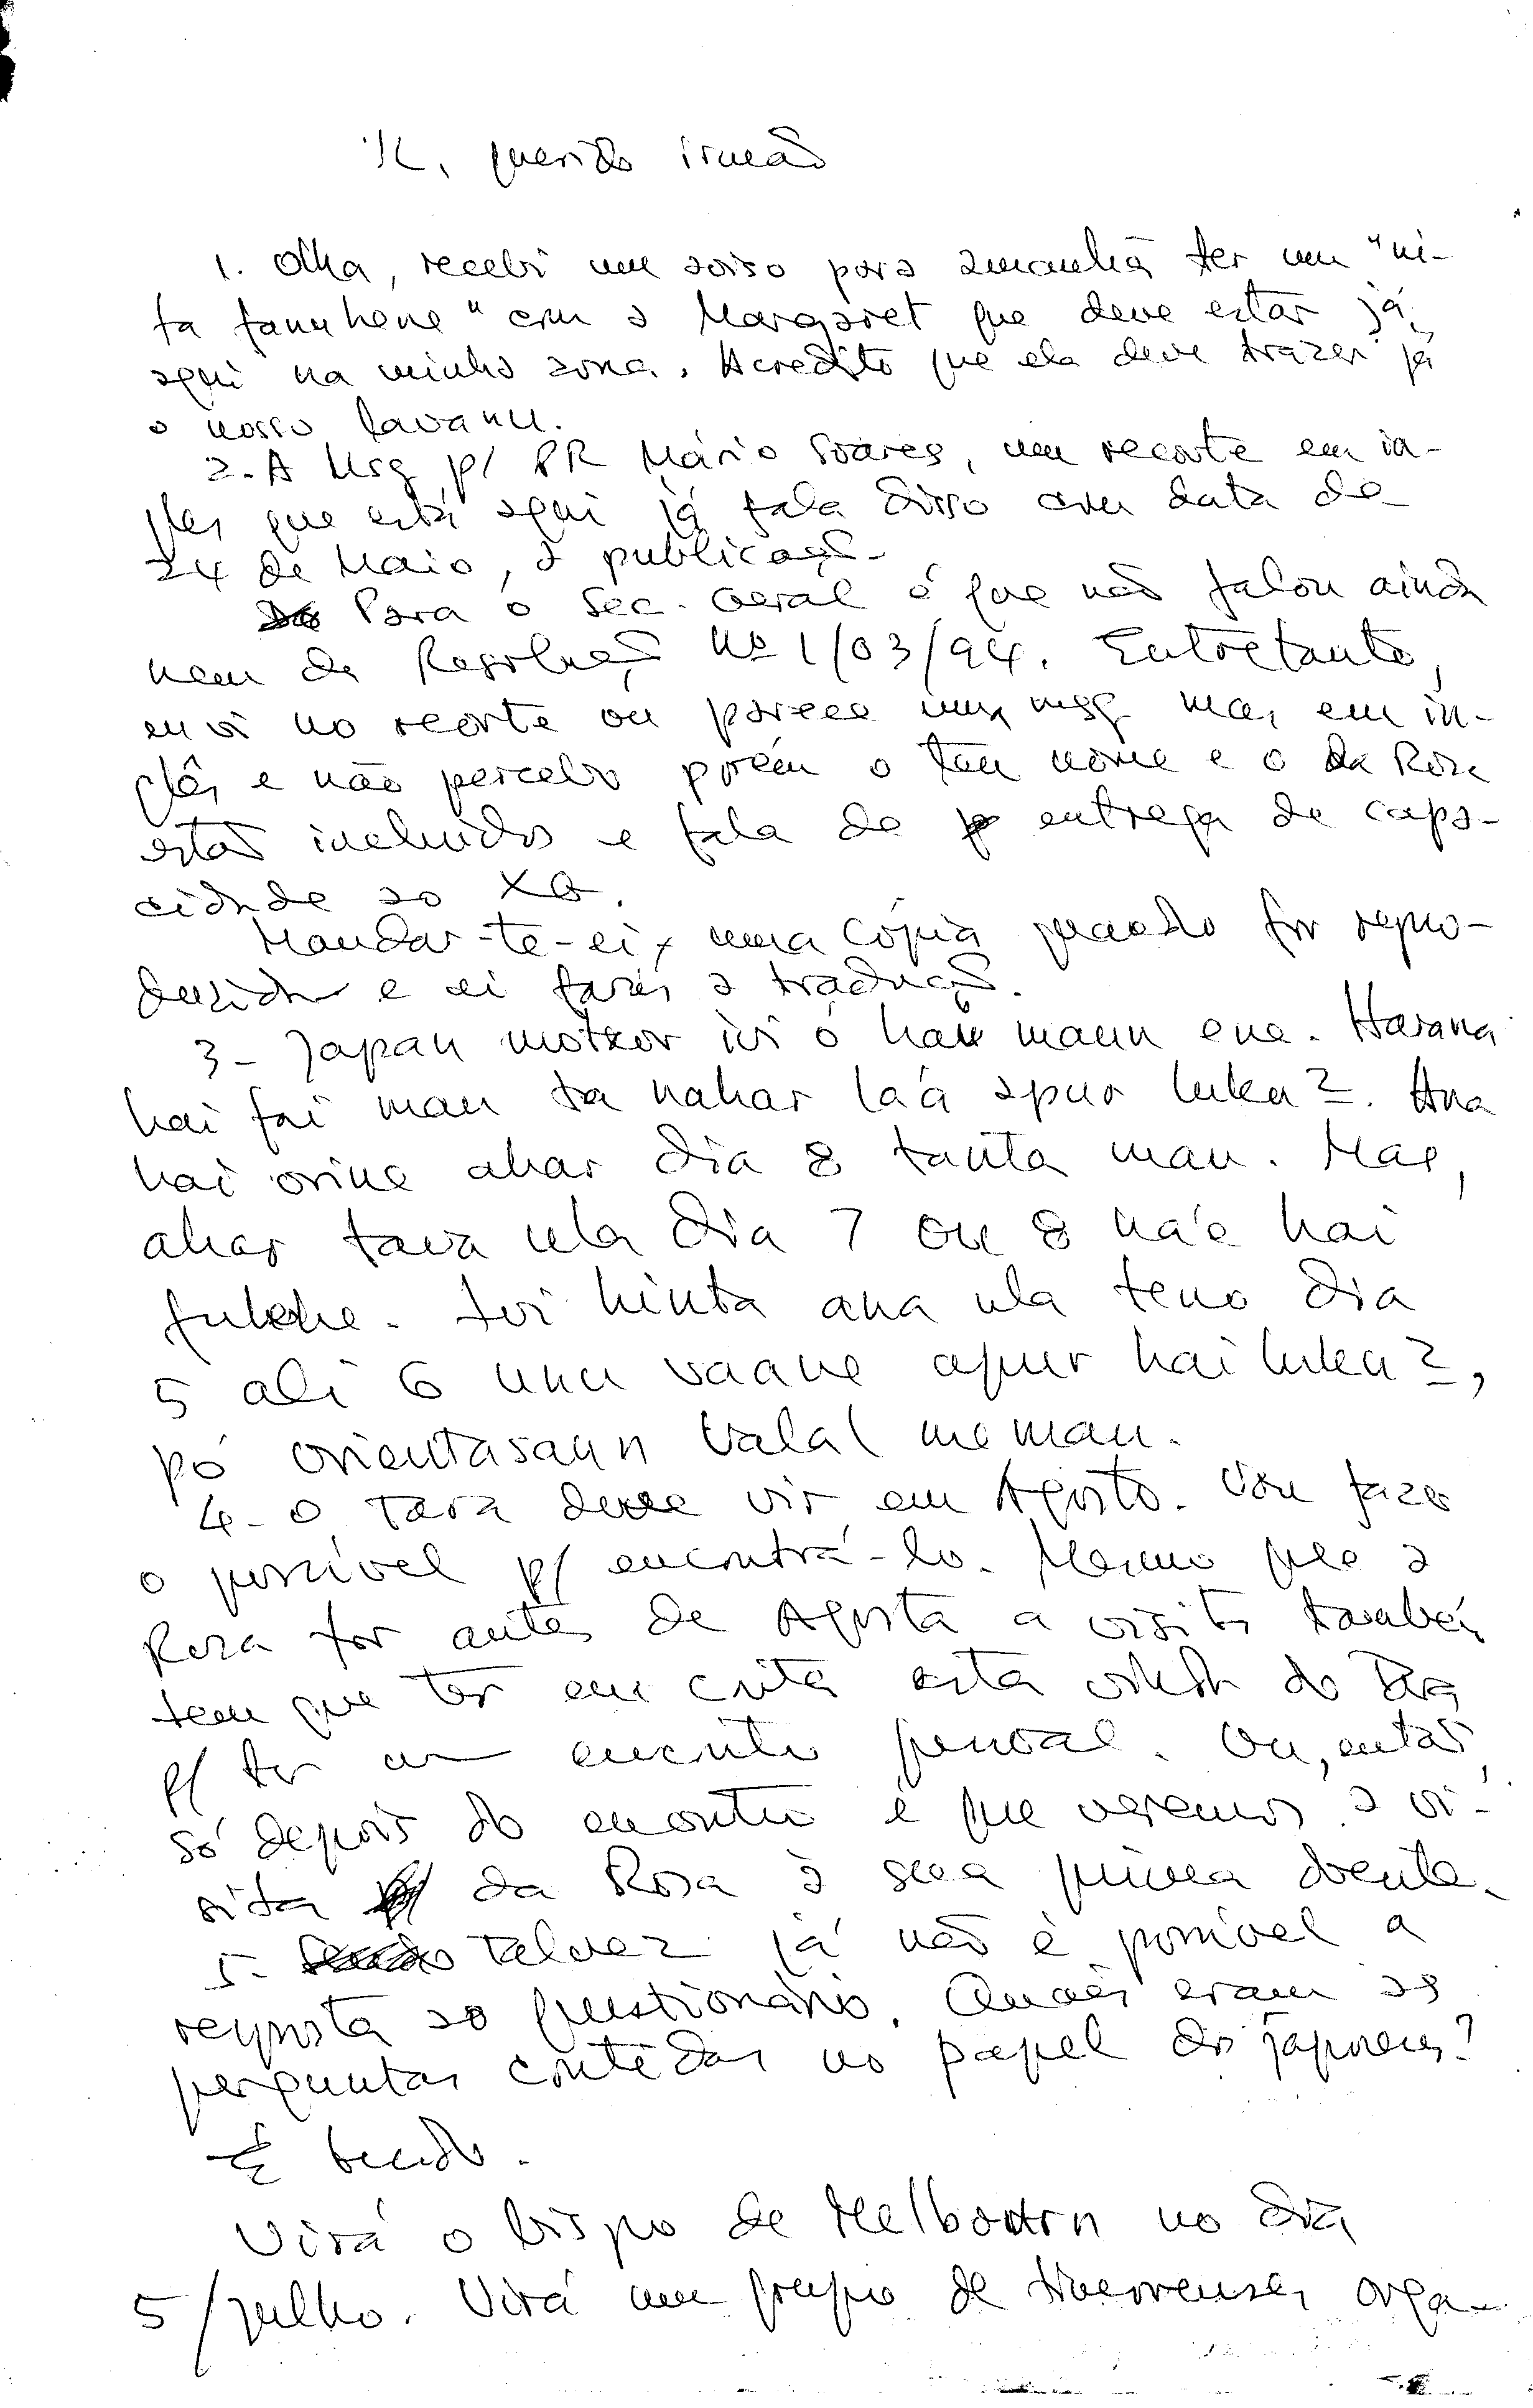 K, querido irmão
1. Olha, recebi um aviso para amanhã ter um "ni-
ta fanuhene" com a Margaret que deve estar já
aqui na minha zona. Acredito que ela deve trazer já
o nosso lavanu.
2. A Msg p/ PR Mário Soares, um recorte em in-
glês que está aqui já fala disso com data de
24 de Maio, a publicação.
Para o Sec. Geral é que não falou ainda
nem da Resolução Nº 1/03/94. Entretanto,
eu vi no recorte ou parece uma msg mas em in-
glês e não percebo porém o teu nome e o da Rosa
estão incluidos e fala de entrega de capa-
cidade ao XG.
Mandar-te-ei uma cópia quando for repro-
duzida e aí farás a tradução.
3- Japan motxor ivi ó hau maun ene. Harana
hai fai man ta nahar la'a apur luken. Ana
hai orine ahar dia 8 tanta man. Mas,
ahar tava ula dia 7 ou 8 na'e hai
. Foi hinta ana ula teno dia
5 ali 6 unu vaane apur hai luken,
pó orientasaun valal me man.
4- O Tara deve vir em Agosto. Vou fazer
o possível p/ encontrá-lo. Mesmo que a
Rosa for antes de Agosto a visita também
tem que ter em conta esta vinda do
p/ ter um encontro pessoal. Ou, então,
só depois do encontro é que veremos a vi-
sita da Rosa à sua prima doente.
5- Talvez já não é possível a
resposta ao questionário. Quais eram as
perguntas contidas no papel dos japoneses?
É tudo.
Virá o bispo de Melbourn no dia
5/julho. Virá um grupo de timorenses orga-